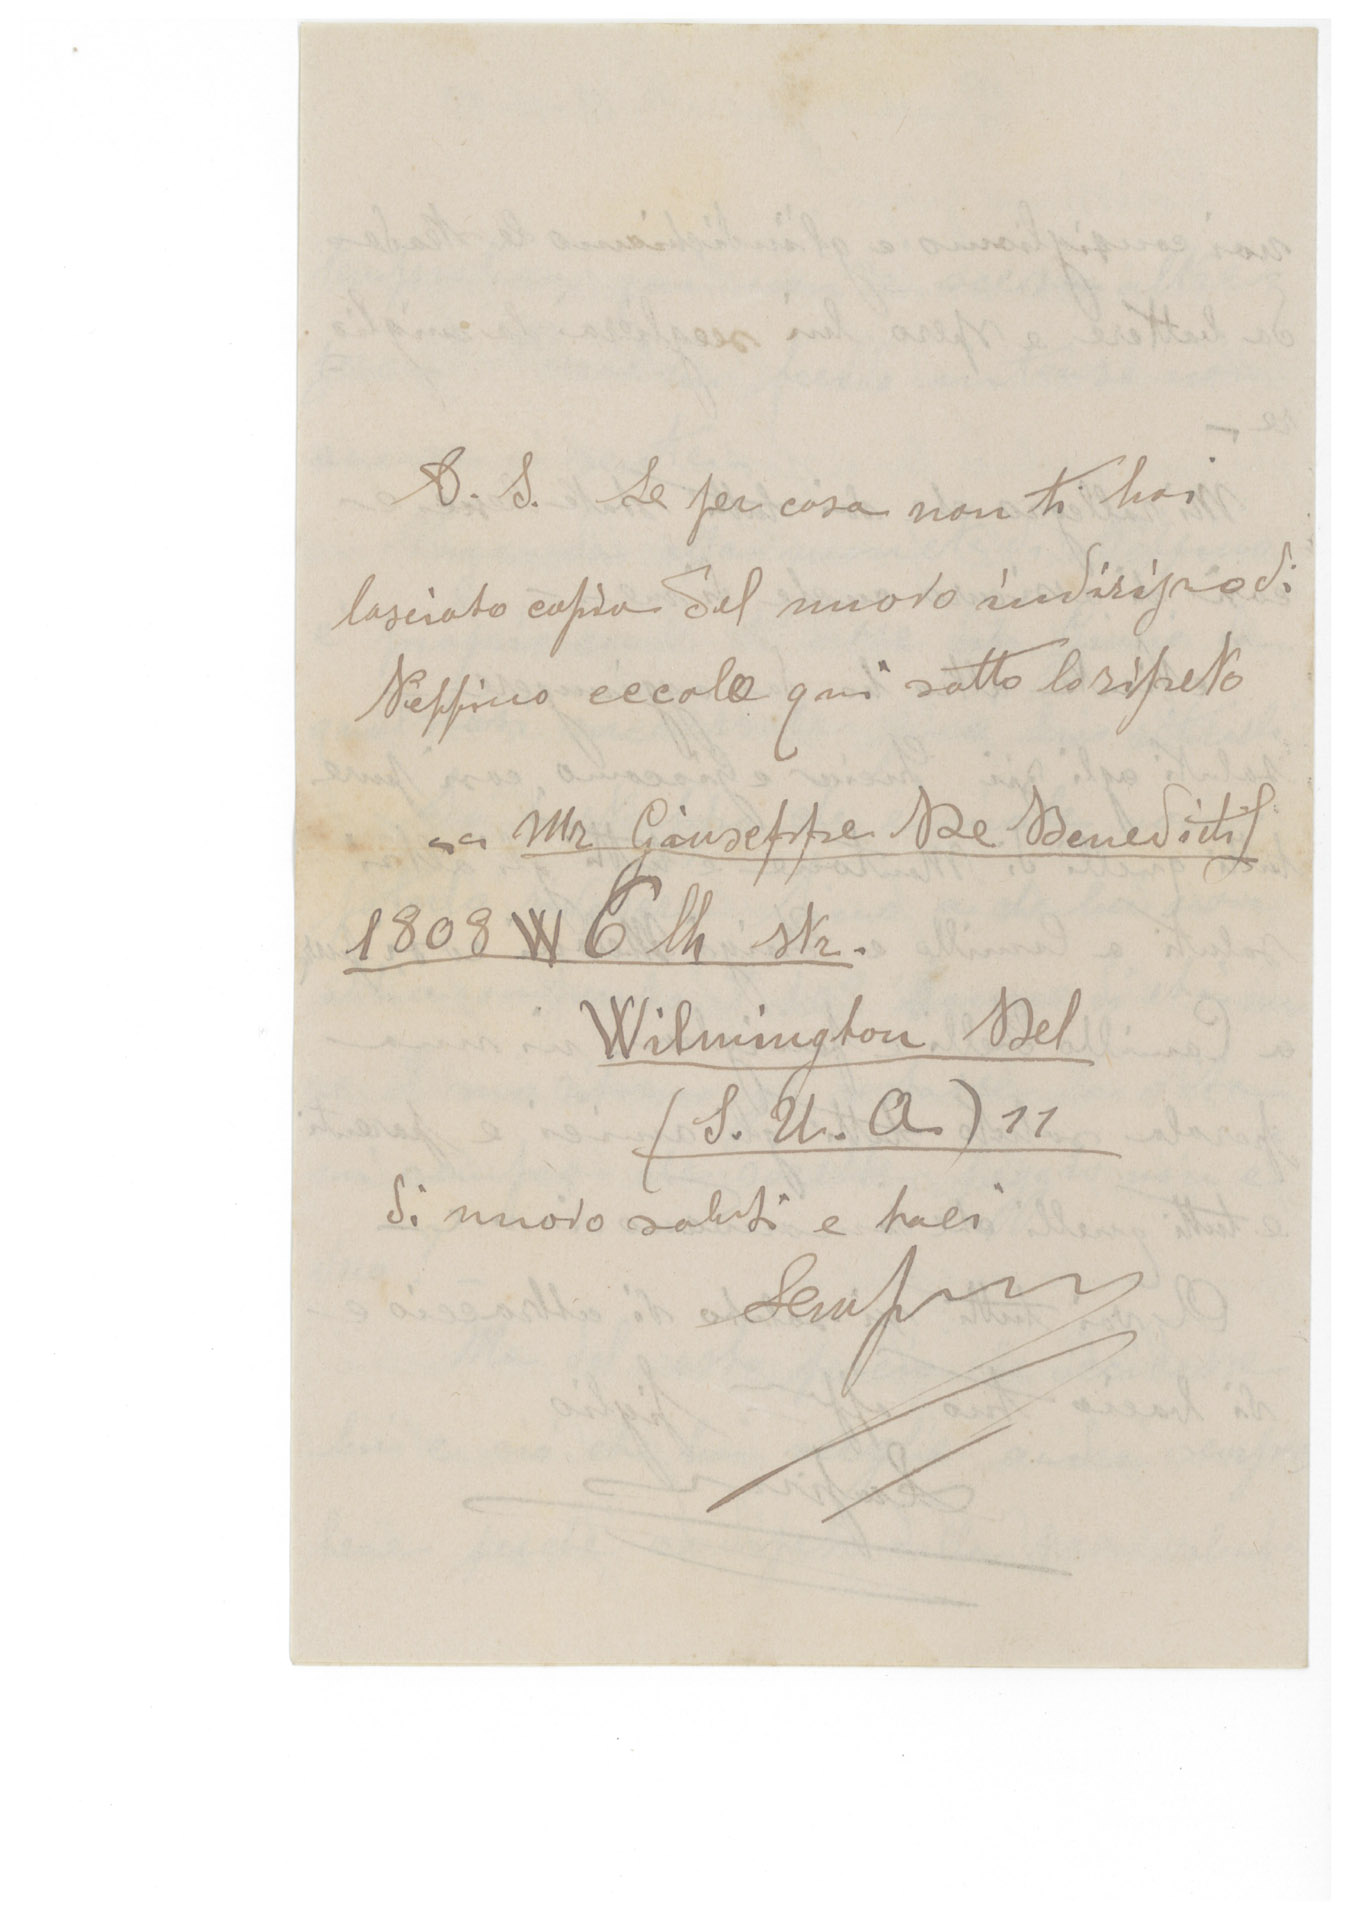 P. S. Se per caso non ti hai
lasciato copia del nuovo indirizzo di
Peppino eccolo qui sotto lo ripeto
" Mr Giuseppe De Benedictis
1808 W 6 th str.
Wilmington Del
(S. U. A.) "
di nuovo saluti e baci